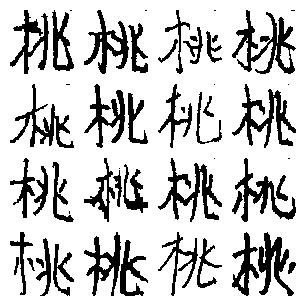 桃桃桃桃
桃桃桃桃
桃桃桃桃
桃桃桃桃